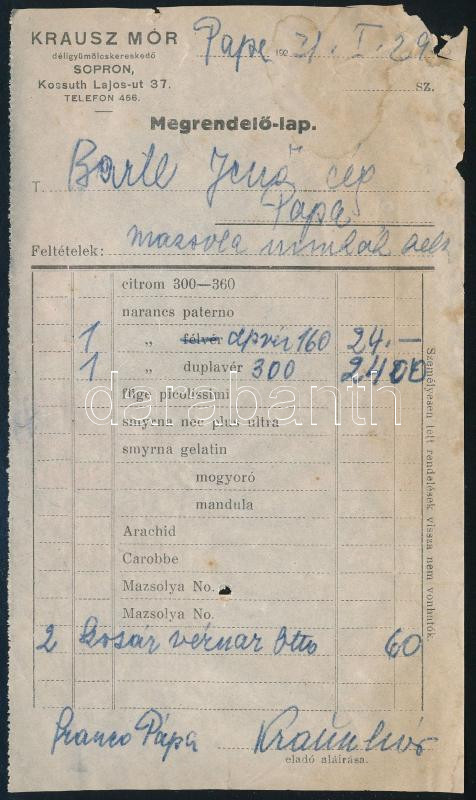 KRAUSZ MÓR
déligyümölcskereskedő
SOPRON,
Kossuth Lajos-ut 37.
TELEFON 456.
Pápa 192 31. I. 29
SZ.
Megrendelő-lap.
T. Jenő cég
Pápa
Feltételek: mazsola
citrom 300—360
narancs paterno
1 „ félvér 160 24.—
1 „ duplavér 300 2400
füge picolissimi
smyrna nec plus ultra
smyrna gelatin
mogyoró
mandula
Arachid
Carobbe
Mazsolya No.
Mazsolya No.
2 kosár vérnar Otto 60
Személyesen tett rendelések vissza nem vonhatók.
Franco Pápa Krausz Mór
eladó aláirása.
darabanth